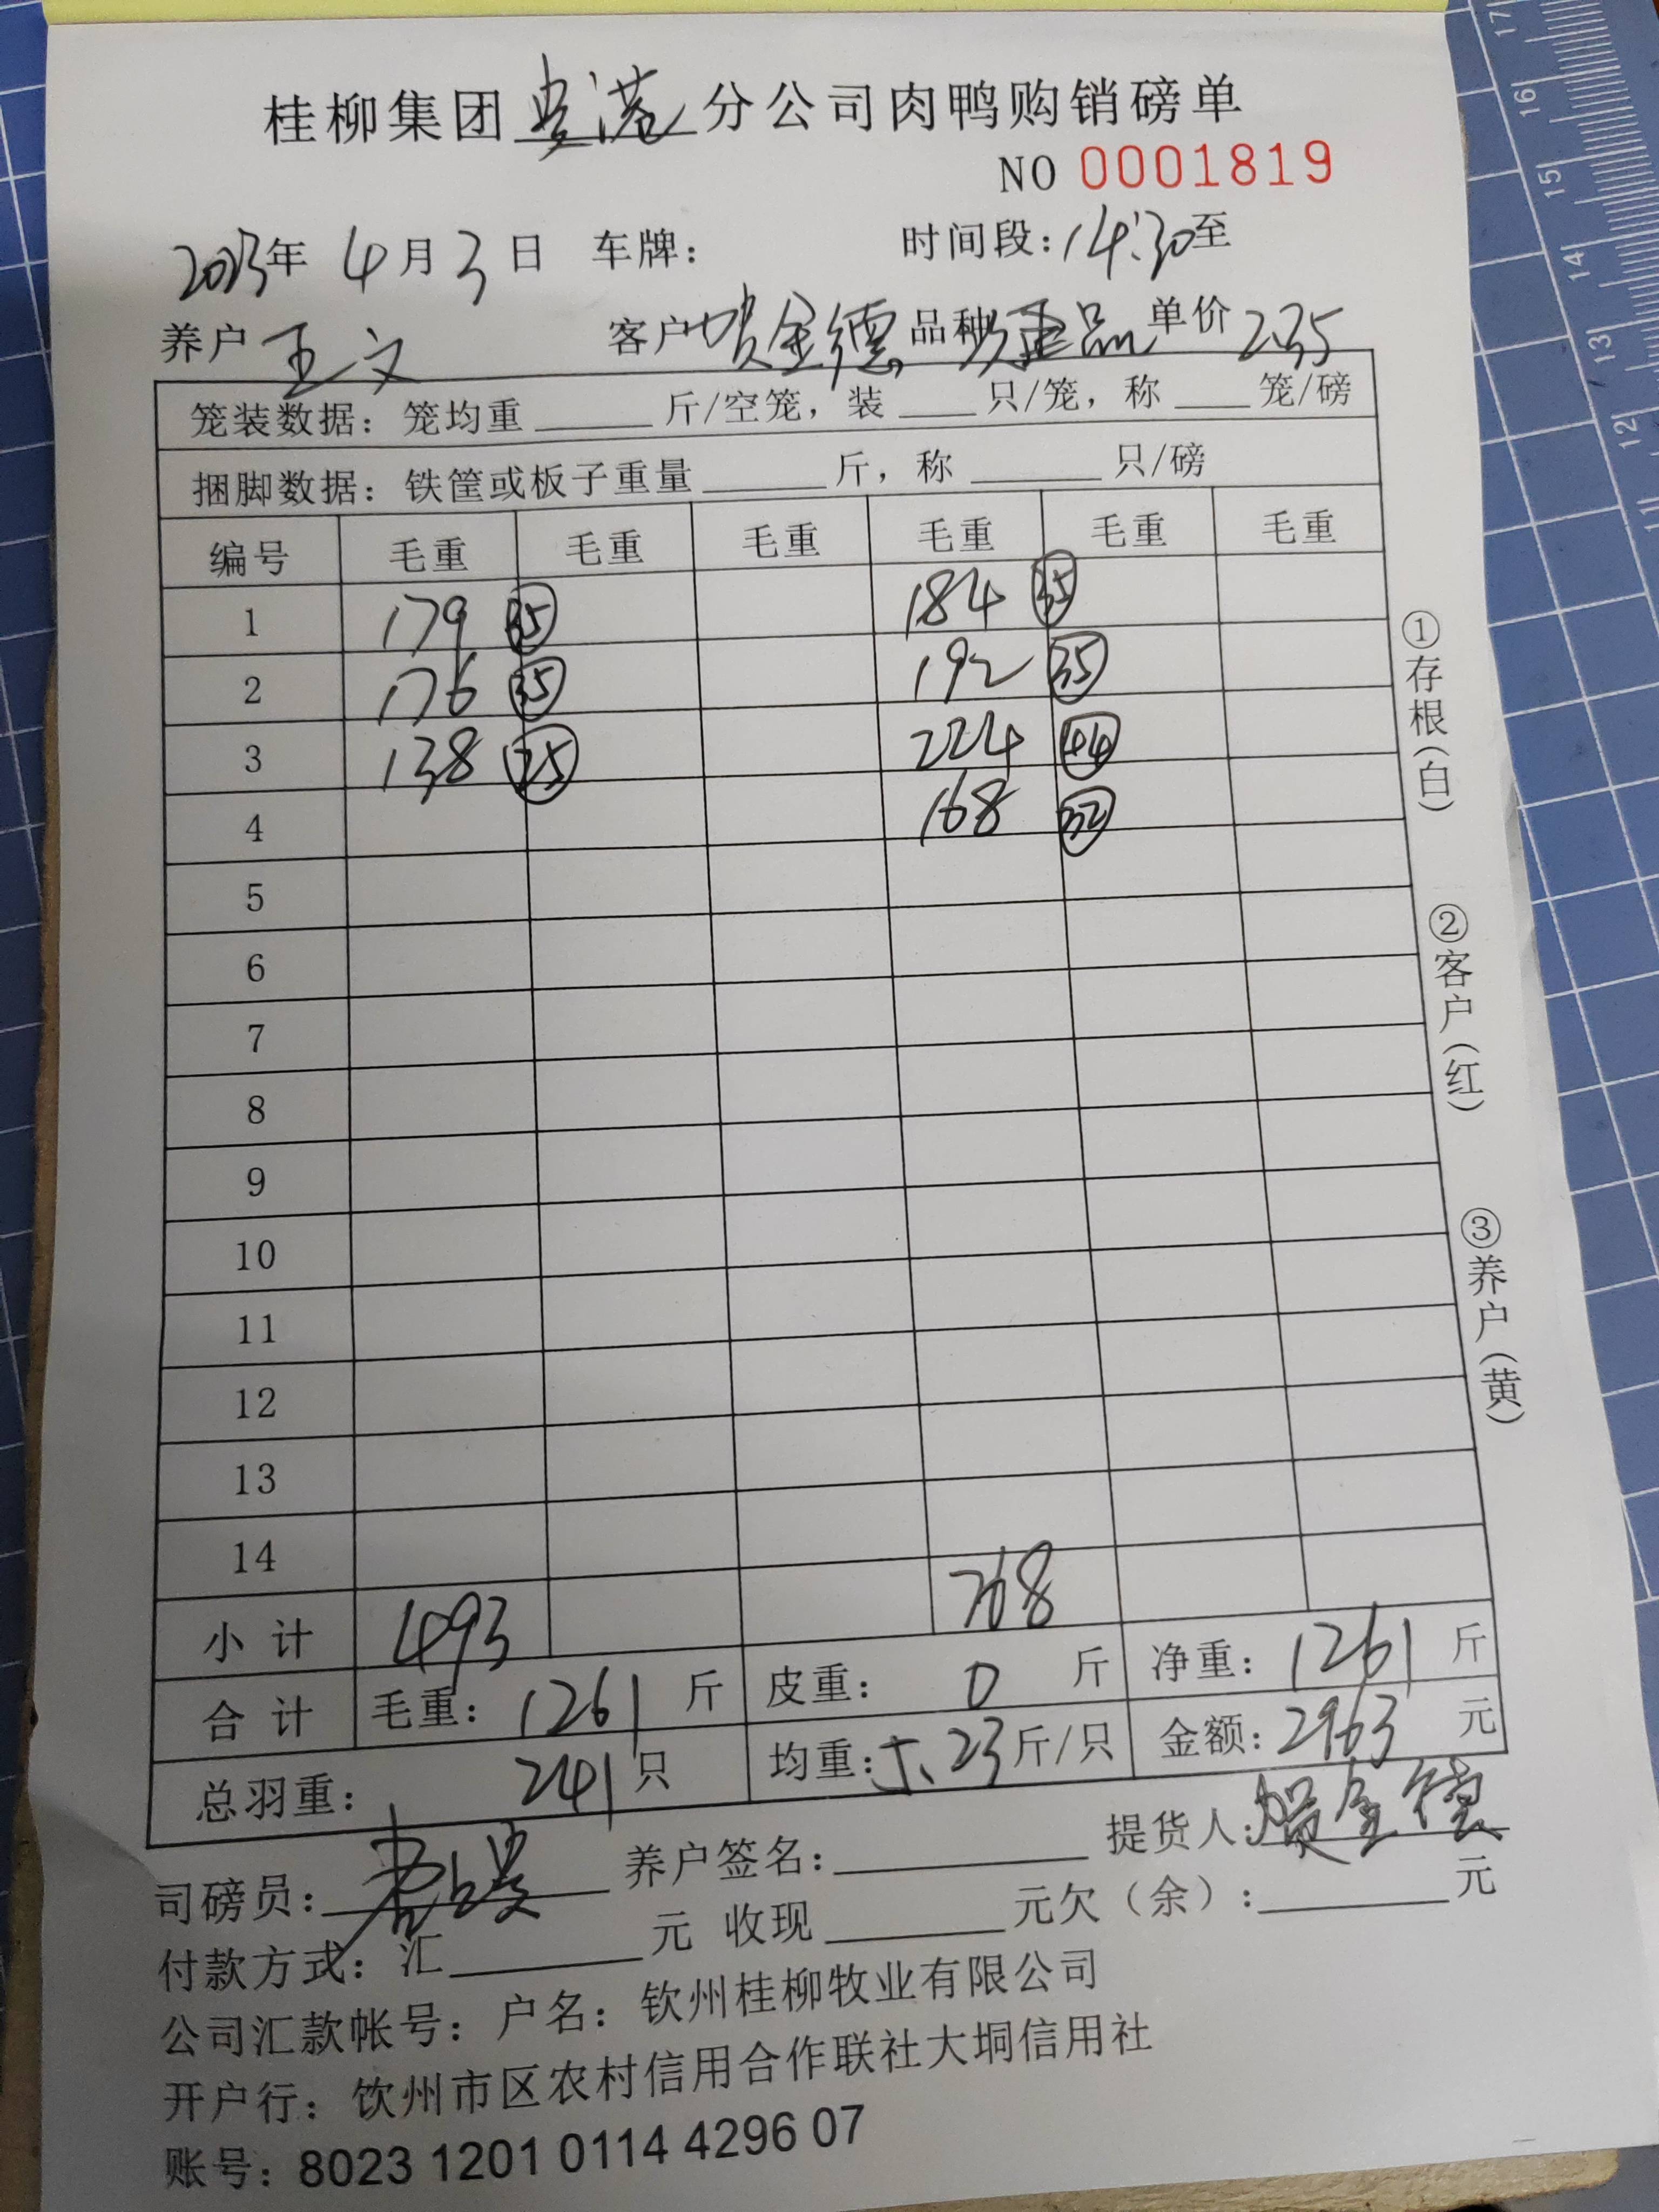 桂柳集团贵港分公司肉鸭购销磅单
NO 0001819
2023年 4月3日 车牌: 时间段:14:30至
养户 王文 客户 贺金德 品种 品 单价 2.35
笼装数据: 笼均重____斤/空笼, 装____只/笼, 称____笼/磅
捆脚数据: 铁筐或板子重量____斤, 称____只/磅
编号 毛重 毛重 毛重 毛重 毛重 毛重
1 179 35 184 35
2 176 35 192 35
3 138 25 224 44
4 168 32
5
6
7
8
9
10
11
12
13
14
小计 493 768
合计 毛重: 1261 斤 皮重: 0 斤 净重: 1261 斤
总羽重: 241 只 均重: 5.23 斤/只 金额: 2963 元
司磅员: 养户签名: 提货人: 贺金德
付款方式: 汇____元 收现____元欠(余):____元
公司汇款帐号: 户名: 钦州桂柳牧业有限公司
开户行: 饮州市区农村信用合作联社大垌信用社
账号: 8023 1201 0114 4296 07
①存根(白)
②客户(红)
③养户(黄)
17
16
15
14
13
12
11